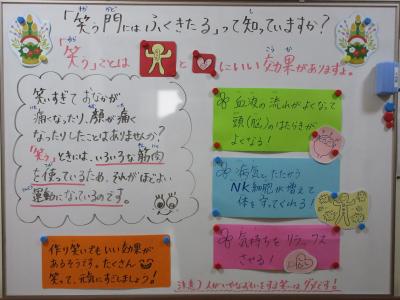 「笑う門にはふくきたる」って知っていますか？
「笑う」ことは
と
にいい効果がありますよ。
笑いすぎておなかが
痛くなったり、顔が痛く
なったりしたことはありませんか？
「笑う」ときには、いろいろな筋肉
を使っているため、それがほどよい
運動になっているのです。
血液の流れがよくなって
頭(脳)のはたらきが
よくなる！
病気とたたかう
NK細胞が増えて
体を守ってくれる！
気持ちをリラックス
させる！
作り笑いでもいい効果が
あるそうです。たくさん
笑って、元気にすごしましょう！
注意）人がいやな気もちになる笑いはダメです！